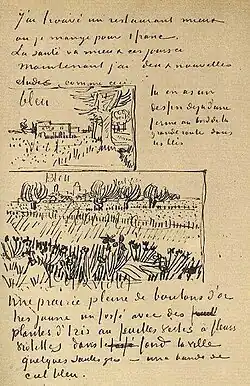 J'ai trouvé un restaurant mieux
ou je mange pour 1 franc.
La santé va mieux ces jours ci
Maintenant j'ai deux nouvelles
etudes comme ceci
tu en as un
dessin deja d'une
ferme au bord de la
grande route dans
les blés
bleu
Bleu
Une prairie pleine de boutons d'or
tres jaune un fossé avec des
plantes d'Iris aux feuilles vertes à fleurs
violettes dans le fond la ville
quelques saules gris – une bande de
ciel bleu.